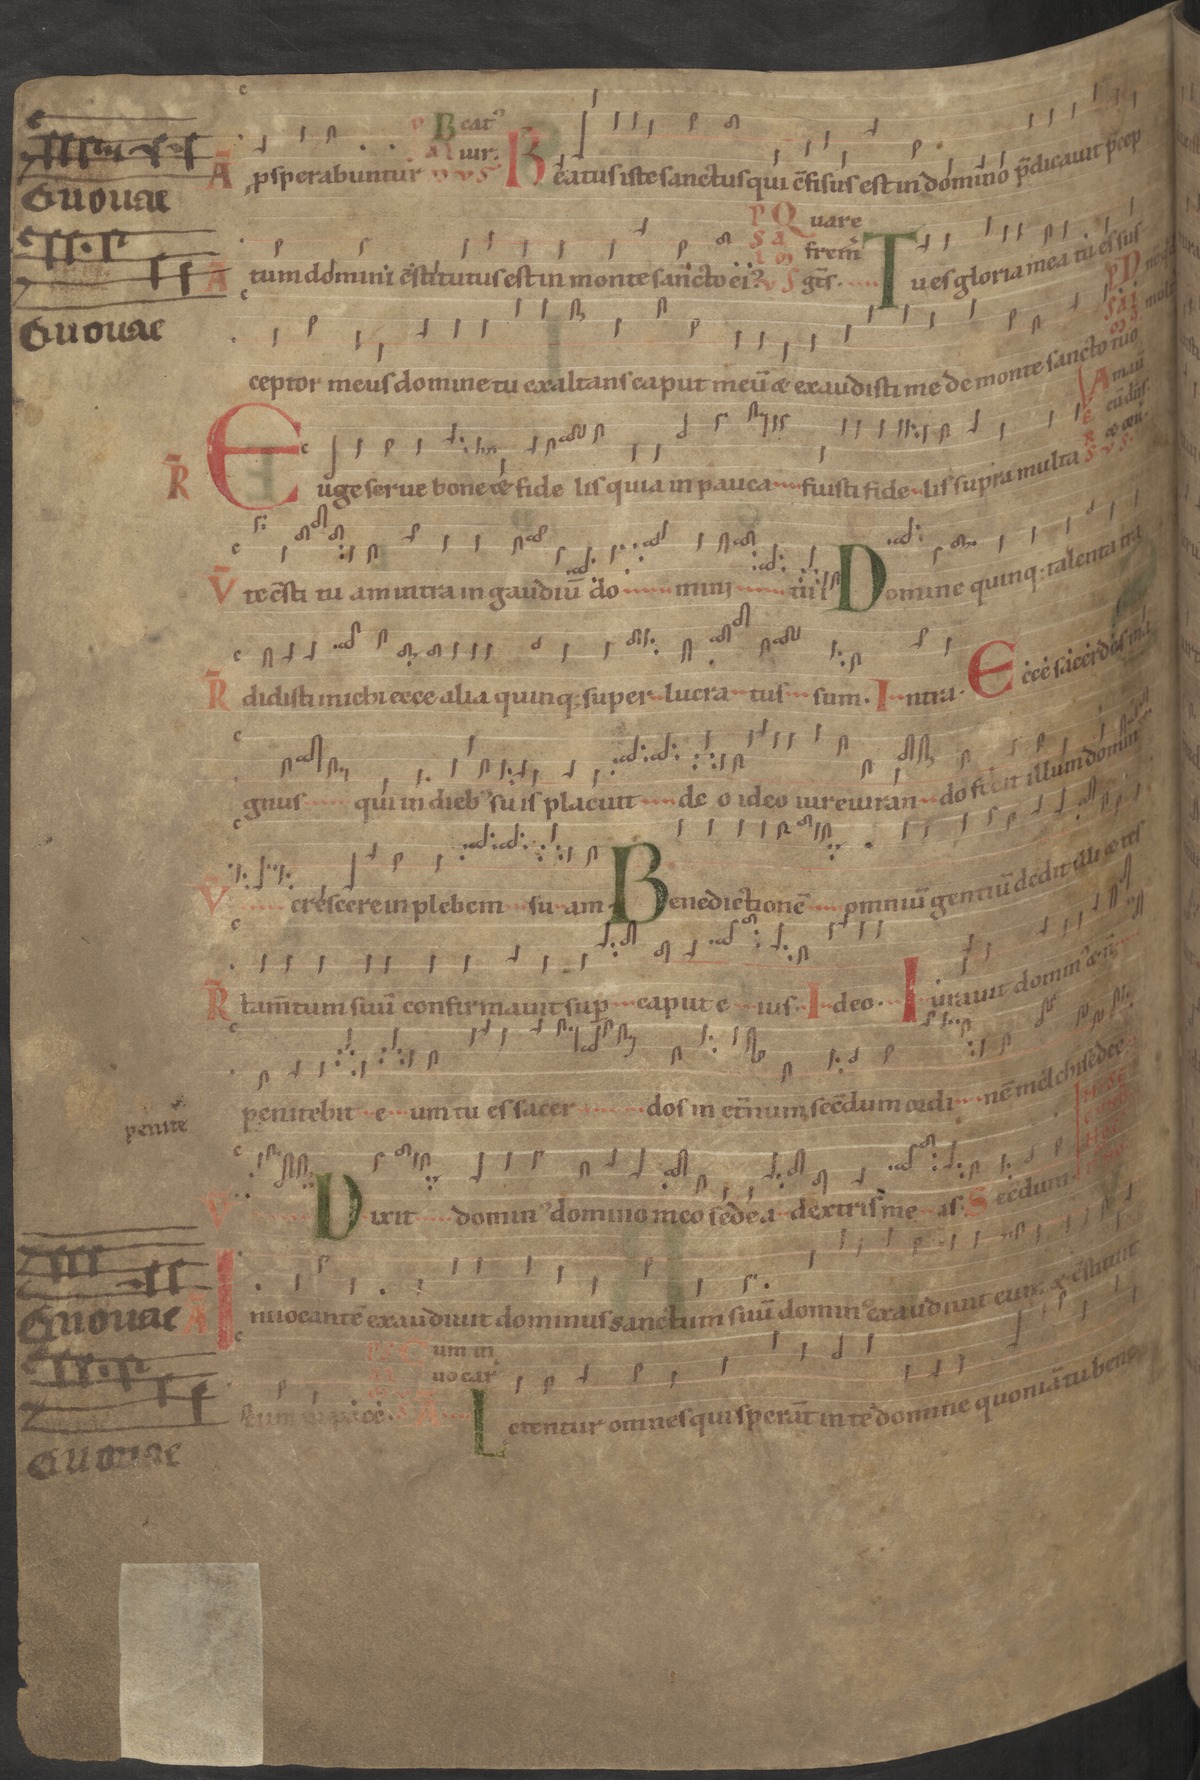 Beatꝰ
Ā ꝓsperabuntur uir. Beatus iste sanctus qui c̄fisus est in domino p̄dicauit p̄cep
Euouae
Quare
frem̄
Ā tum domini c̄stitutus est in monte sancto eiꝰ gt̄s. Tu es gloria mea tu es sus
Euouae
ceptor meus domine tu exaltans caput meū & exaudisti me de monte sancto tuo
R̄ Euge serue bone & fide lis quia in pauca fuisti fide lis supra multa
V̄ te c̄sti tu am intra in gaudiū do mini tui Domine quinq; talenta tra
R̄ didisti michi ecce alia quinq; super lucra tus sum. Intra. Ecce sacerdos ma
gnus qui in diebꝰ suis placuit de o ideo iureiuran do fecit illum domin
V̄ crescere in plebem su am Benedictionē omniū gentiū dedit illi & tes
R̄ tam̄tum suū confirmauit sup caput e ius. Ideo. Iurauit dominꝰ & n̄
penitebit e um tu es sacer dos in et̄num secd̄um ordi nē melchisedec
penite
V Dixit dominꝰ domino meo sede a dextris me is. Secd̄um.
Euouae
Ā Inuocantē exaudiuit dominus sanctum suū dominꝰ exaudiuit eum & c̄stituit
Cum in
uocar
eum in pace. Letentur omnes qui sperāt in te domine quoniā tu bene
Euouae